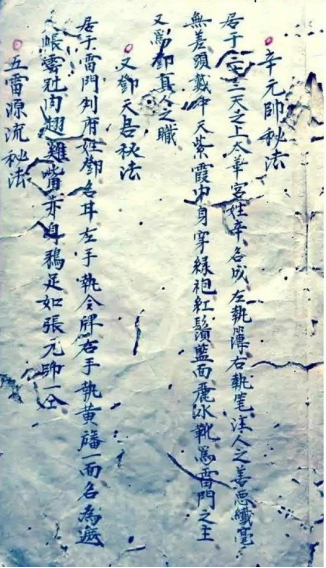 辛元帥秘法
居于三十三天之上太華宮姓辛名成左執簿右執笔注人之善惡纖毫
無差頭戴冲天紫霞巾身穿綠袍紅鬚藍面鹿冰靴爲雷門之主
又爲鄧真人之職
又鄧天君秘法
居于雷門列府姓鄧名耳左手執令牌右手執黄旛一面名為
帳雷社肉翅雞嘴赤身鴉足如張元帅一仝
五雷源流秘法